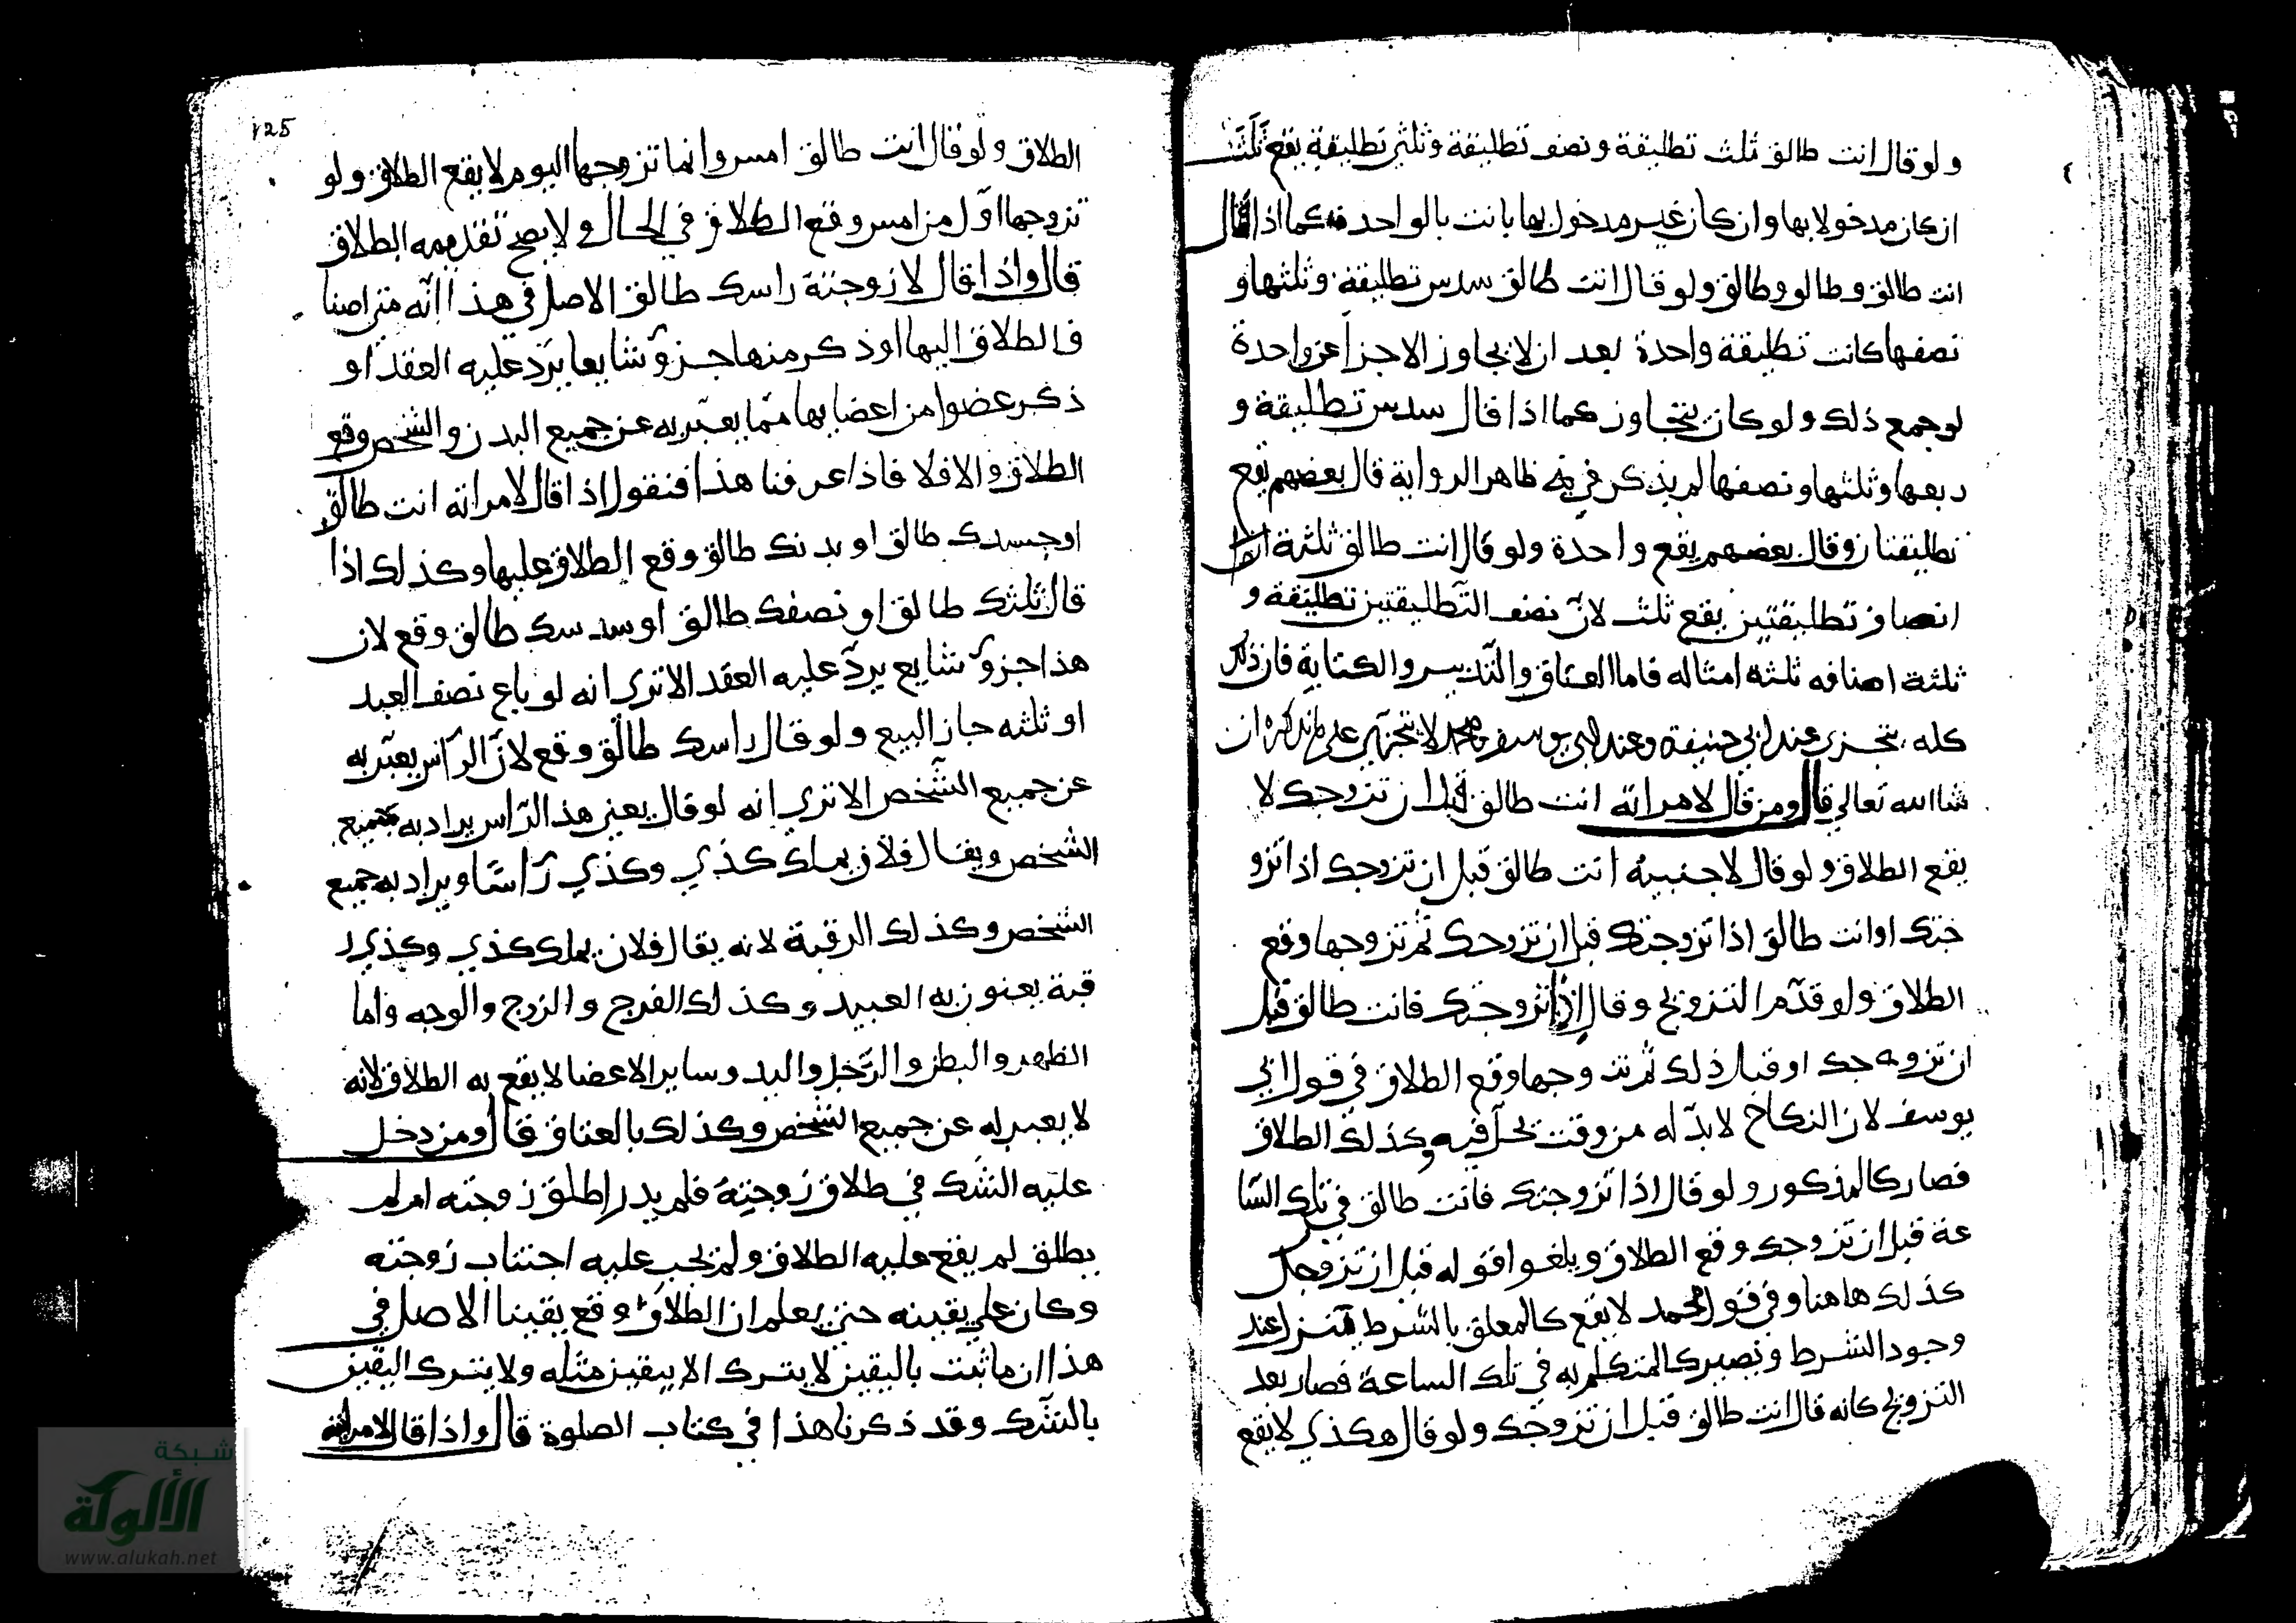 ولو قال انت طالق ثلث تطليقة ونصف تطليقة وثلثي تطليقة يقع ثلث
ان كان مدخولا بها وان كان غير مدخول بها بانت بالواحدة كما اذا قال
انت طالق وطالق وطالق ولو قال انت طالق سدس تطليقة وثلثها و
نصفها كانت تطليقة واحدة بعد ان لا يجاوز الاجزأ عن واحدة
لو جمع ذلك ولو كان يتجاوز كما اذا قال سدس تطليقة و
ربعها وثلثها ونصفها لم يذكر في ظاهر الرواية قال بعضهم يقع
تطليقتان وقال بعضهم يقع واحدة ولو قال انت طالق ثلثة
انصاف تطليقتين يقع ثلث لان نصف التطليقتين تطليقة و
ثلثة اصنافه ثلثة امثاله فاما العتاق والتدبير والكتابة فان ذلك
كله يتجزى عند ابي حنيفة وعند ابي يوسف ومحمد لا يتجزى على ما نذكره ان
شا الله تعالي قال ومن قال لامراته انت طالق قبل ان تزوجك لا
يقع الطلاق ولو قال لاجنبية انت طالق قبل ان تزوجك اذا تزو
جتك او انت طالق اذا تزوجتك قبل ان تزوجك ثم تزوجها وقع
الطلاق ولو قدم التزويج وقال اذا تزوجتك فانت طالق قبل
ان تزوجك او قبل ذلك ثم تزوجها وقع الطلاق في قول ابي
يوسف لان النكاح لا بد له من وقت يحل فيه وكذلك الطلاق
فصار كالمذكور ولو قال اذا تزوجتك فانت طالق في تلك السا
عة قبل ان تزوجك وقع الطلاق ويلغوا قوله قبل ان تزوجك
كذلك هاهنا وفي قول محمد لا يقع كالمعلق بالشرط ينزل عند
وجود الشرط ونصير كالمتكلم به في تلك الساعة فصار بعد
التزويج كانه قال انت طالق قبل ان تزوجك ولو قال هكذي لا يقع
125
الطلاق ولو قال انت طالق امس وانما تزوجها اليوم لا يقع الطلاق ولو
تزوجها اول من امس وقع الطلاق في الحال ولا يصح تقديمه الطلاق
قال واذا قال لازوجتة راسك طالق الاصل في هذا انه متى اصنا
ف الطلاق اليها او ذكر منها جزؤ شايعا يرد عليه العقد او
ذكر عضوا من اعضايها مما يعبر به عن جميع البدن والشخص وقع
الطلاق والا فلا فاذا عرفنا هذا فنقول اذا قال لامراته انت طالق
او جسدك طالق او بدنك طالق وقع الطلاق عليها وكذلك اذا
قال ثلثك طالق او نصفك طالق او سدسك طالق وقع لان
هذا جزؤ شايع يرد عليه العقد الا ترى انه لو باع نصف العبد
او ثلثه جاز البيع ولو قال راسك طالق وقع لان الراس يعبر به
عن جميع الشخص الا ترى انه لو قال بعني هذا الراس يراد به جميع
الشخص ويقال فلان يملك كذي وكذي راسا ويراد به جميع
الشخص وكذلك الرقبة لانه يقال فلان يملك كذي وكذي ر
قبة يعنون به العبيد وكذلك الفرج والزوج والوجه واما
الظهر والبطن والرجل واليد وساير الاعضا لا يقع به الطلاق لانه
لا يعبر به عن جميع الشخص وكذلك بالعتاق قال ومن دخل
عليه الشك في طلاق زوجتة فلم يدر اطلق زوجته ام لم
يطلق لم يقع عليه الطلاق ولم يجب عليه اجتناب زوجته
وكان علي يقينه حتى يعلم ان الطلاق وقع يقينا الاصل في
هذا ان ما ثبت باليقين لا يترك الا بيقين مثله ولا يترك اليقين
بالشك وقد ذكرنا هذا في كتاب الصلوة قال واذا قال لامراته
شبكة
الألوكة
www.alukah.net